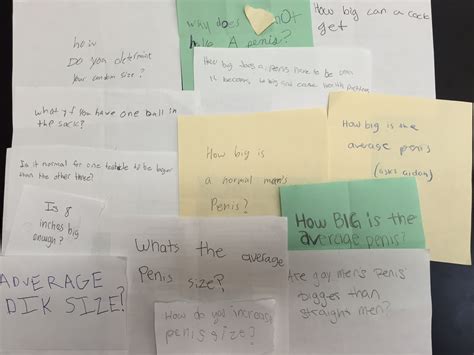 how
Do you determine
your condom size?
why does NOT
have A penis?
How big can a cock
get
How big does a penis have to be
is become to big and cause health
what if you have one ball in
the sack?
Is it normal for one testicle to be bigger
than the other three?
How big is
a normal man's
Penis?
How big is the
average penis
(asks aidan)
Is 8
inches big
enough?
Whats the average
Penis size?
HOW BIG is the
average penis?
ADVERAGE
DIK SIZE?
How do you increase
penis size?
Are gay mens penis'
bigger than
straight men?